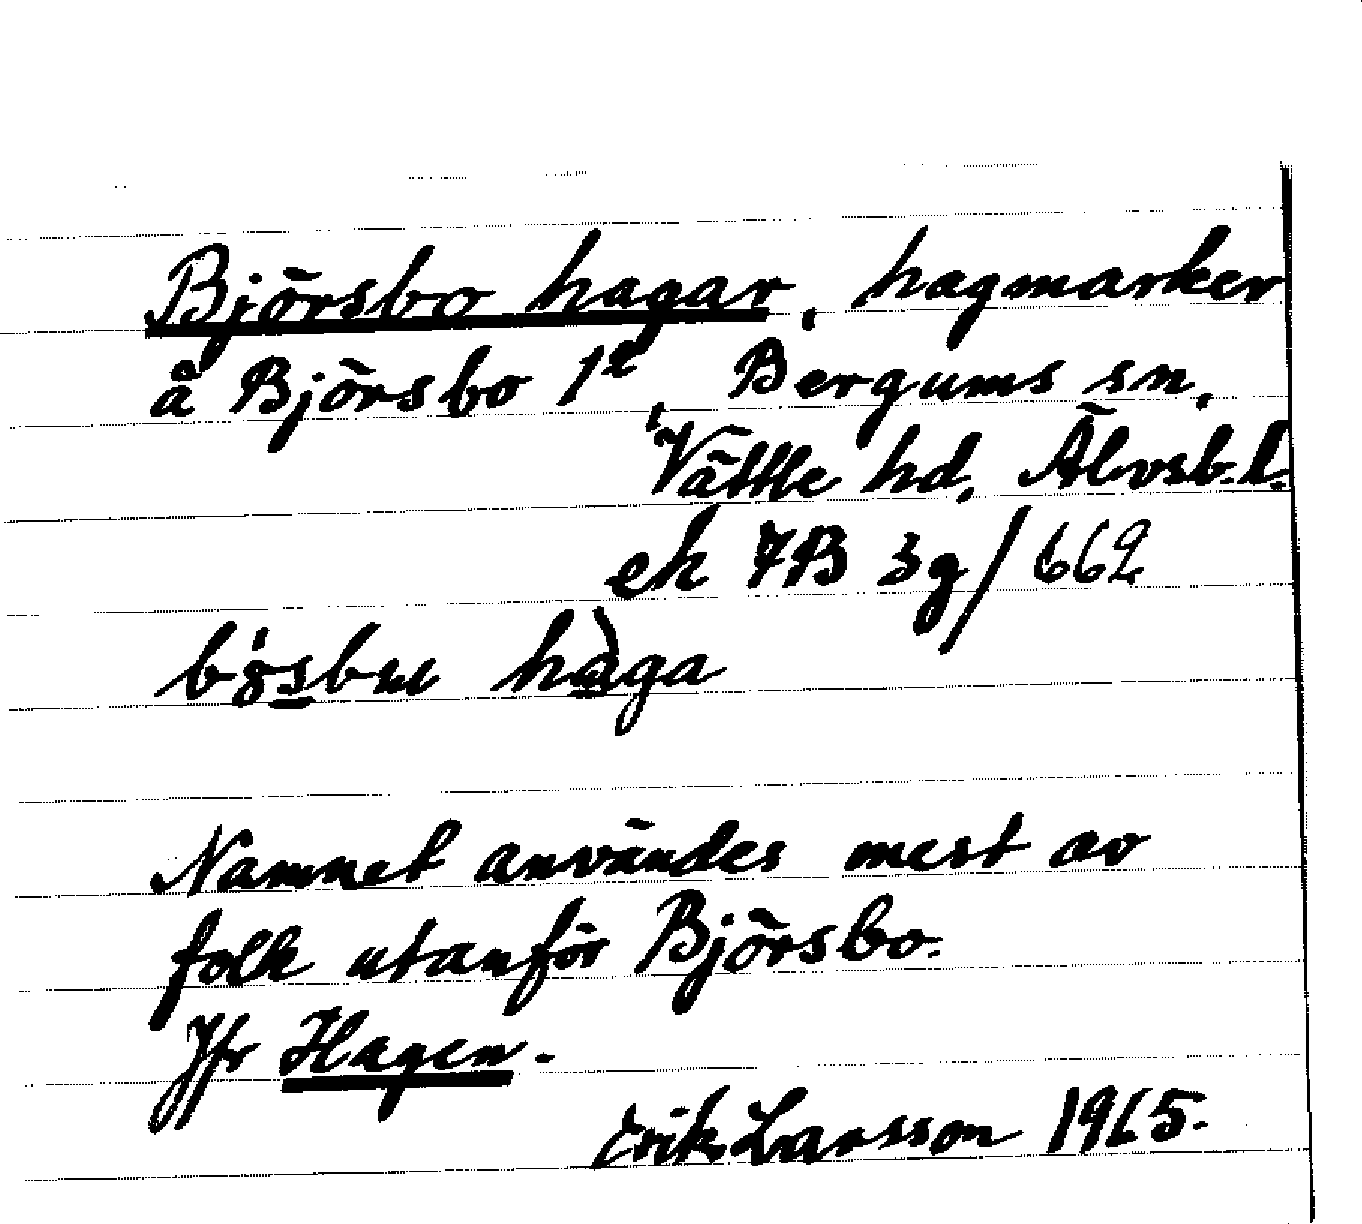 Björsbo hagar, hagmarker
å Björsbo 1², Bergums sn,
Vättle hd, Älvsb. l.
ek 7B 3g/662
haga
Namnet användes mest av
folk utanför Björsbo.
Jfr Hagen.
Erik Larsson 1965.